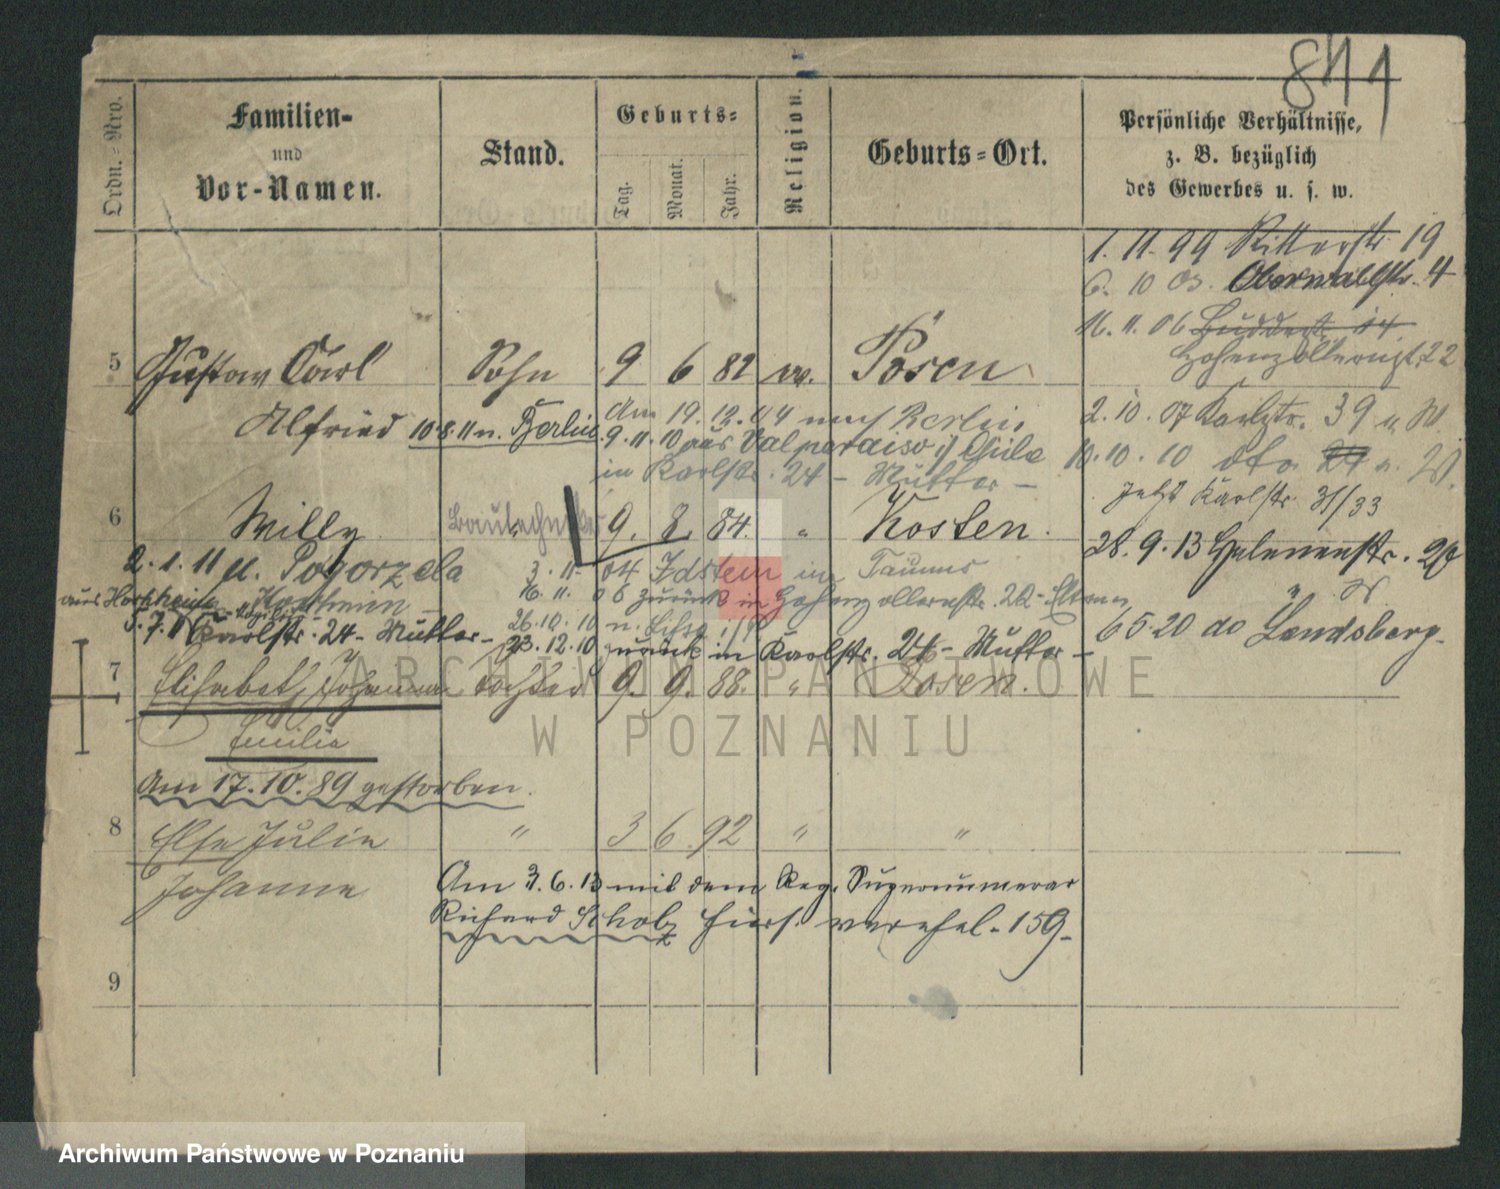 841
Ordn.-Nro.
Familien-
und
Vor-Namen.
Stand.
Geburts-
Tag.
Monat.
Jahr.
Religion.
Geburts-Ort.
Persönliche Verhältnisse,
z. B. bezüglich
des Gewerbes u. s. w.
1. 11. 99 Ritterstr. 19
6. 10 03. Oberwallstr. 4
16. 11. 06
Hohenzollernstr. 22
5 Gustav Carl Sohn 9 6 82 ev. Posen
Alfried 10.8.11 n. Berlin
Am 19. 12. 04 nach Berlin
9. 11. 10 aus Valparaiso i/ Chile
in Karlstr. 24 - Mutter -
2. 10. 07 Karlstr. 39 u. W.
10. 10. 10 dto. 24 u. W.
jetzt Karlstr. 31/33
6 Willy Bautechniker 9. 8. 84. " Kosten.
28. 9. 13 Helenenstr. 2
2. 1. 11 n. Pogorzela
3. 11. 04 Idstein im Taunus
16. 11. 06 zurück in Hohenzollernstr. 22 - Eltern
aus
5. 7. 11 Karlstr. 24 - Mutter -
26. 10. 10 n.
23. 12. 10 zurück in Karlstr. 24 - Mutter -
6 5. 20 do Landsberg.
7 Elisabeth Johanna Tochter 9. 9. 88. " Posen.
Emilie
Am 17. 10. 89 gestorben.
8 Else Julie " 3 6 92 " "
Johanne
Am 3. 6. 13 mit dem Reg. Supernumerar
Richard Scholz hiers. verehel. - 159 -
9
ARCHIWUM PAŃSTWOWE
W POZNANIU
Archiwum Państwowe w Poznaniu